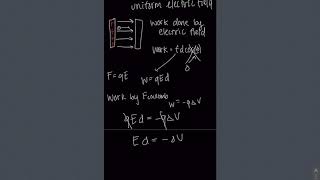 uniform electric field
work done by
electric field
work = Fdcos(θ)
F = qE
W = qEd
Work by Fcoulomb
W = -qΔV
qEd = -qΔV
Ed = -ΔV